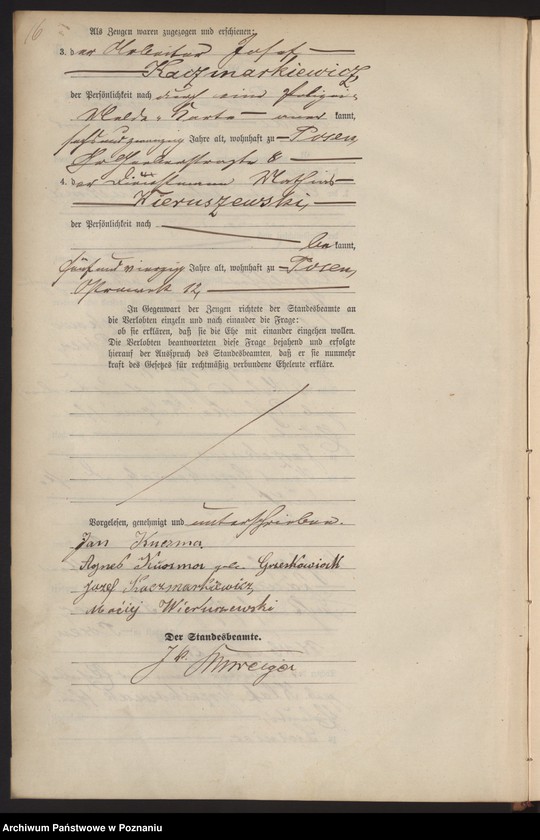 16
Als Zeugen waren zugezogen und erschienen:
3. der Arbeiter Josef
Kaczmarkiewicz
der Persönlichkeit nach durch eine Polizei-
Melde-Karte aner kannt,
sechsundzwanzig Jahre alt, wohnhaft zu Posen,
8
4. der Dienstmann Mathias
Wieruszewski,
der Persönlichkeit nach
be kannt,
fünfundvierzig Jahre alt, wohnhaft zu Posen,
12,
In Gegenwart der Zeugen richtete der Standesbeamte an
die Verlobten einzeln und nach einander die Frage:
ob sie erklären, daß sie die Ehe mit einander eingehen wollen.
Die Verlobten beantworteten diese Frage bejahend und erfolgte
hierauf der Ausspruch des Standesbeamten, daß er sie nunmehr
kraft des Gesetzes für rechtmäßig verbundene Eheleute erkläre.
Vorgelesen, genehmigt und unterschrieben.
Jan Kuczma
Agnes Kuczma geb. Grzeskowiak
Jozef Kaczmarkiewicz
Maciej Wieruszewski
Der Standesbeamte.
Archiwum Państwowe w Poznaniu